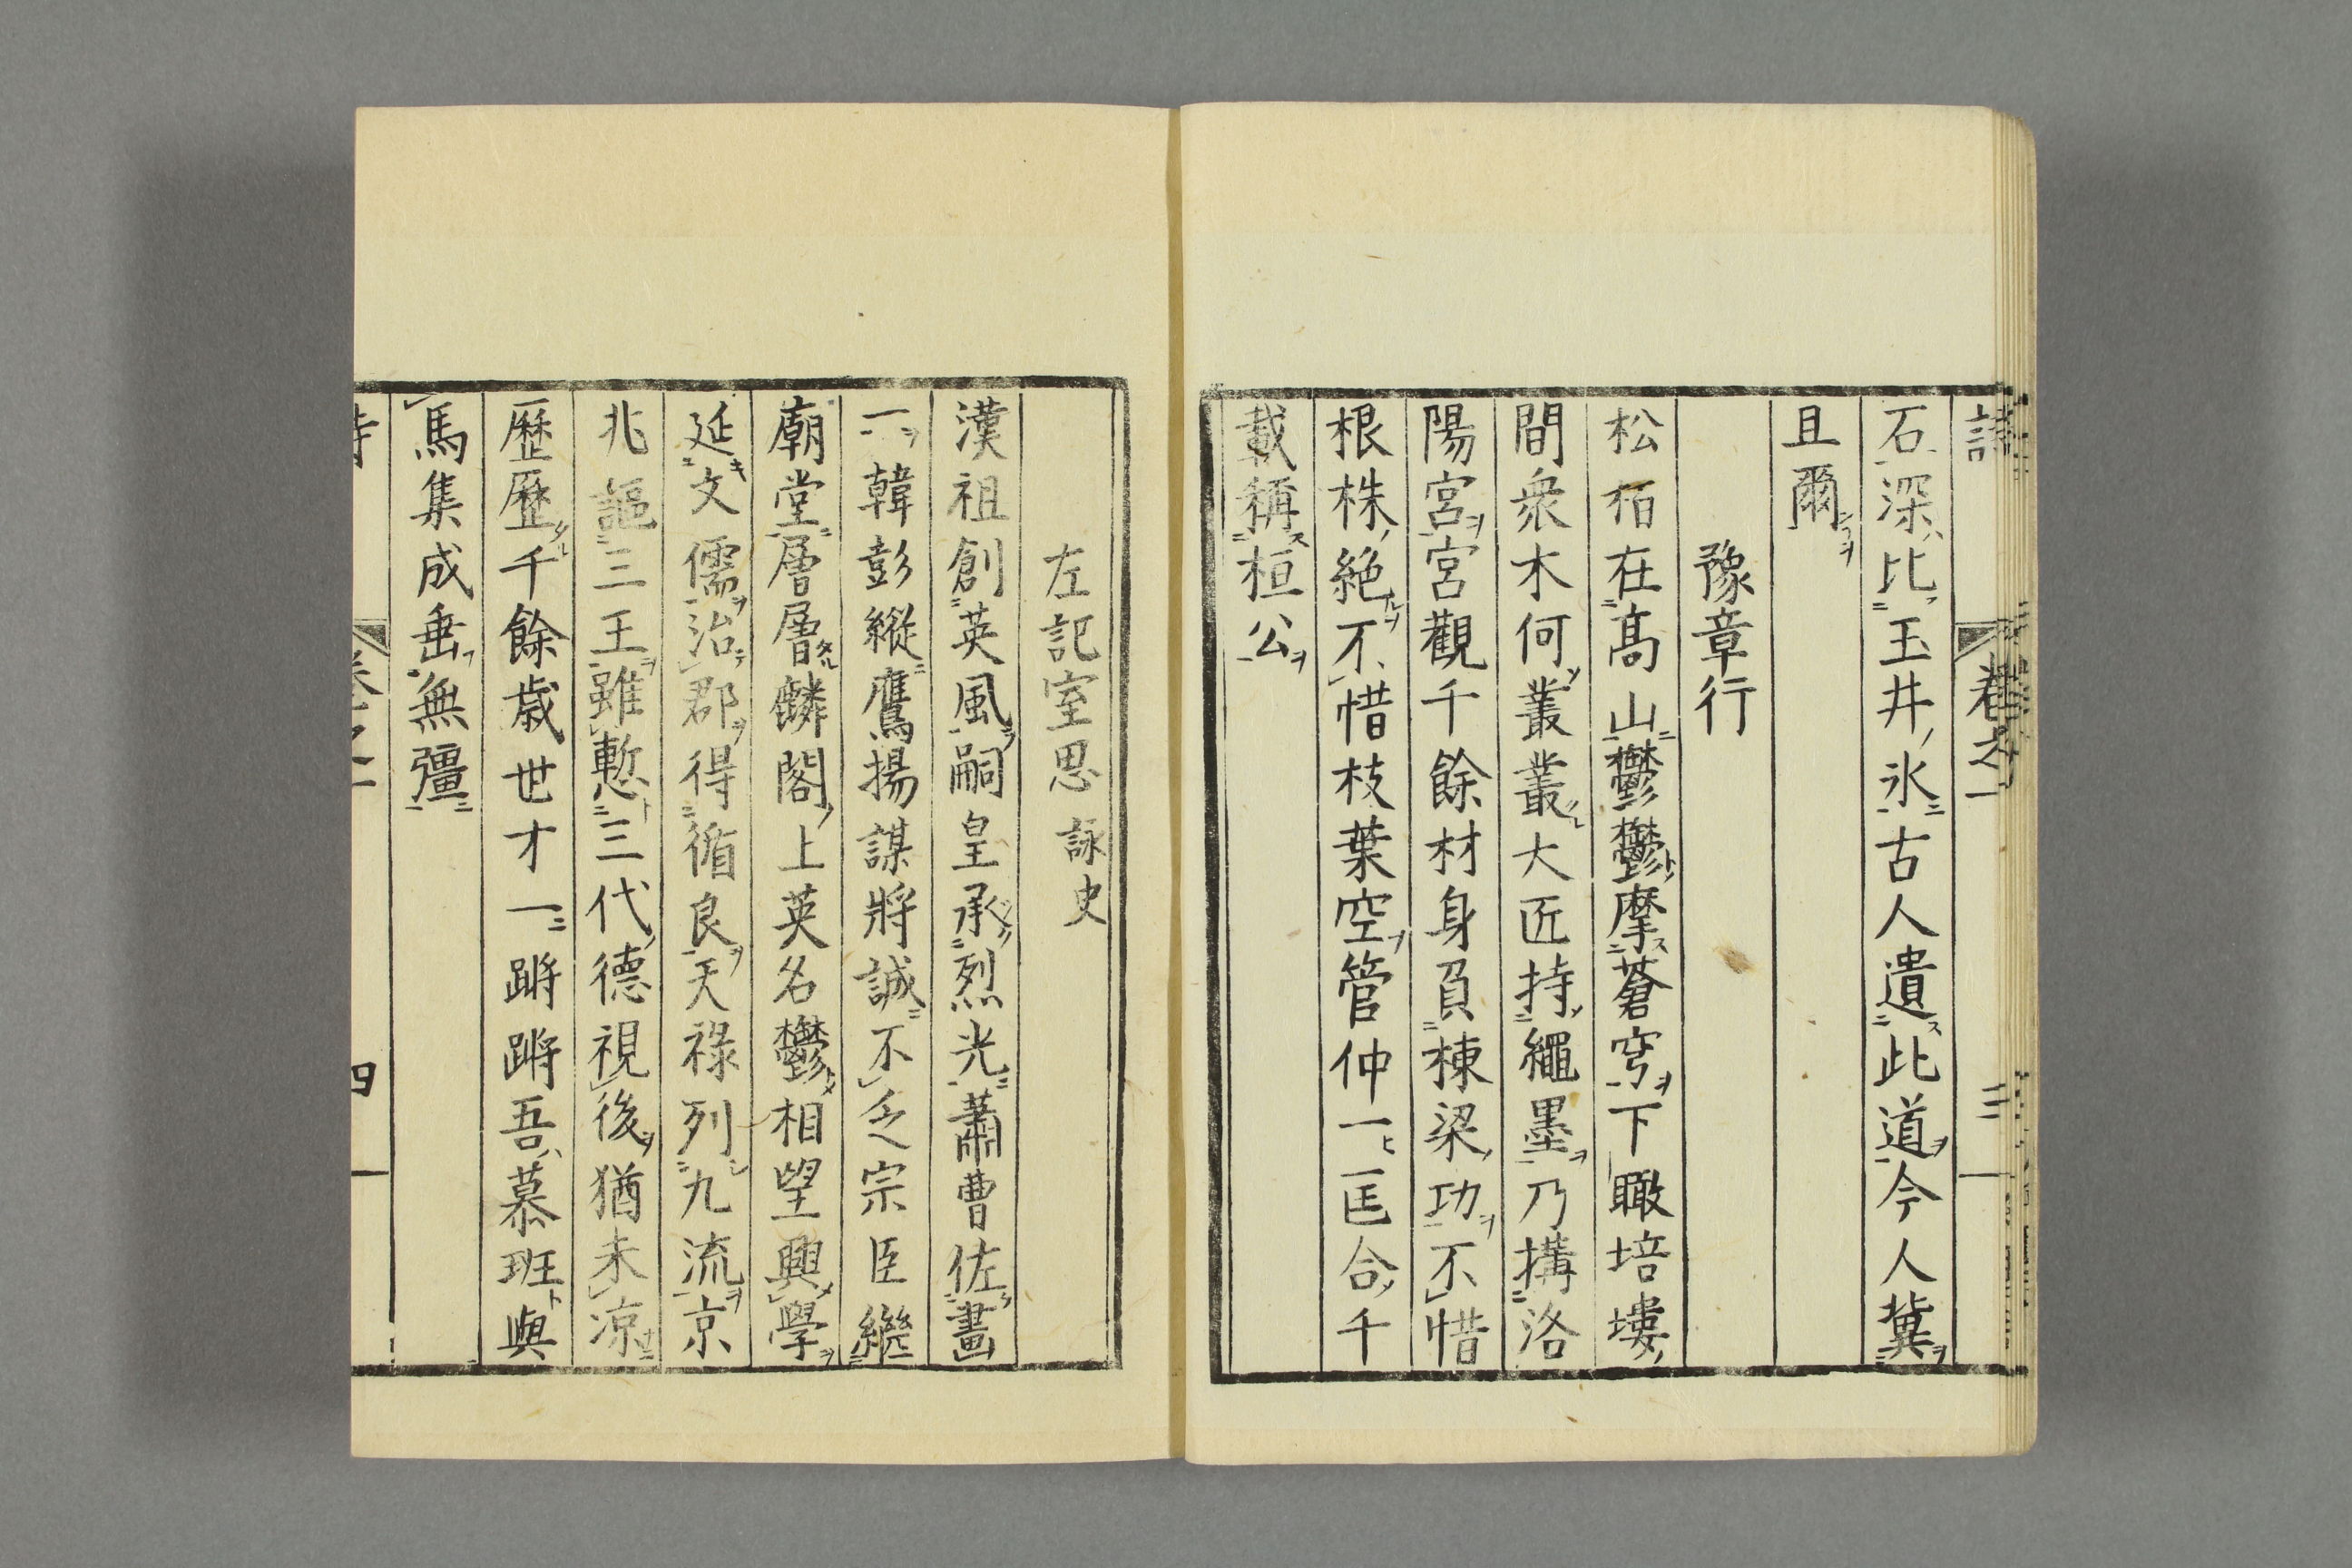 卷之一
三
石深比玉井氷古人遺此道今人冀
且爾
豫章行
松栢在髙山鬱鬱摩蒼穹下瞰培塿
間衆木何叢叢大匠持繩墨乃搆洛
陽宮宮觀千餘材身負棟梁功不惜
根株絶不惜枝葉空管仲一匡合千
載稱桓公
左記室思 詠史
漢祖創英風嗣皇承烈光蕭曹佐畫
一韓彭縱鷹揚謀將誠不乏宗臣繼
廟堂層層麟閣上英名鬱相望興學
延文儒治郡得循良天祿列九流京
兆謳三王雖慙三代德視後猶未凉
歷歷千餘歳世才一蹡蹡吾慕班與
馬集成垂無彊
四